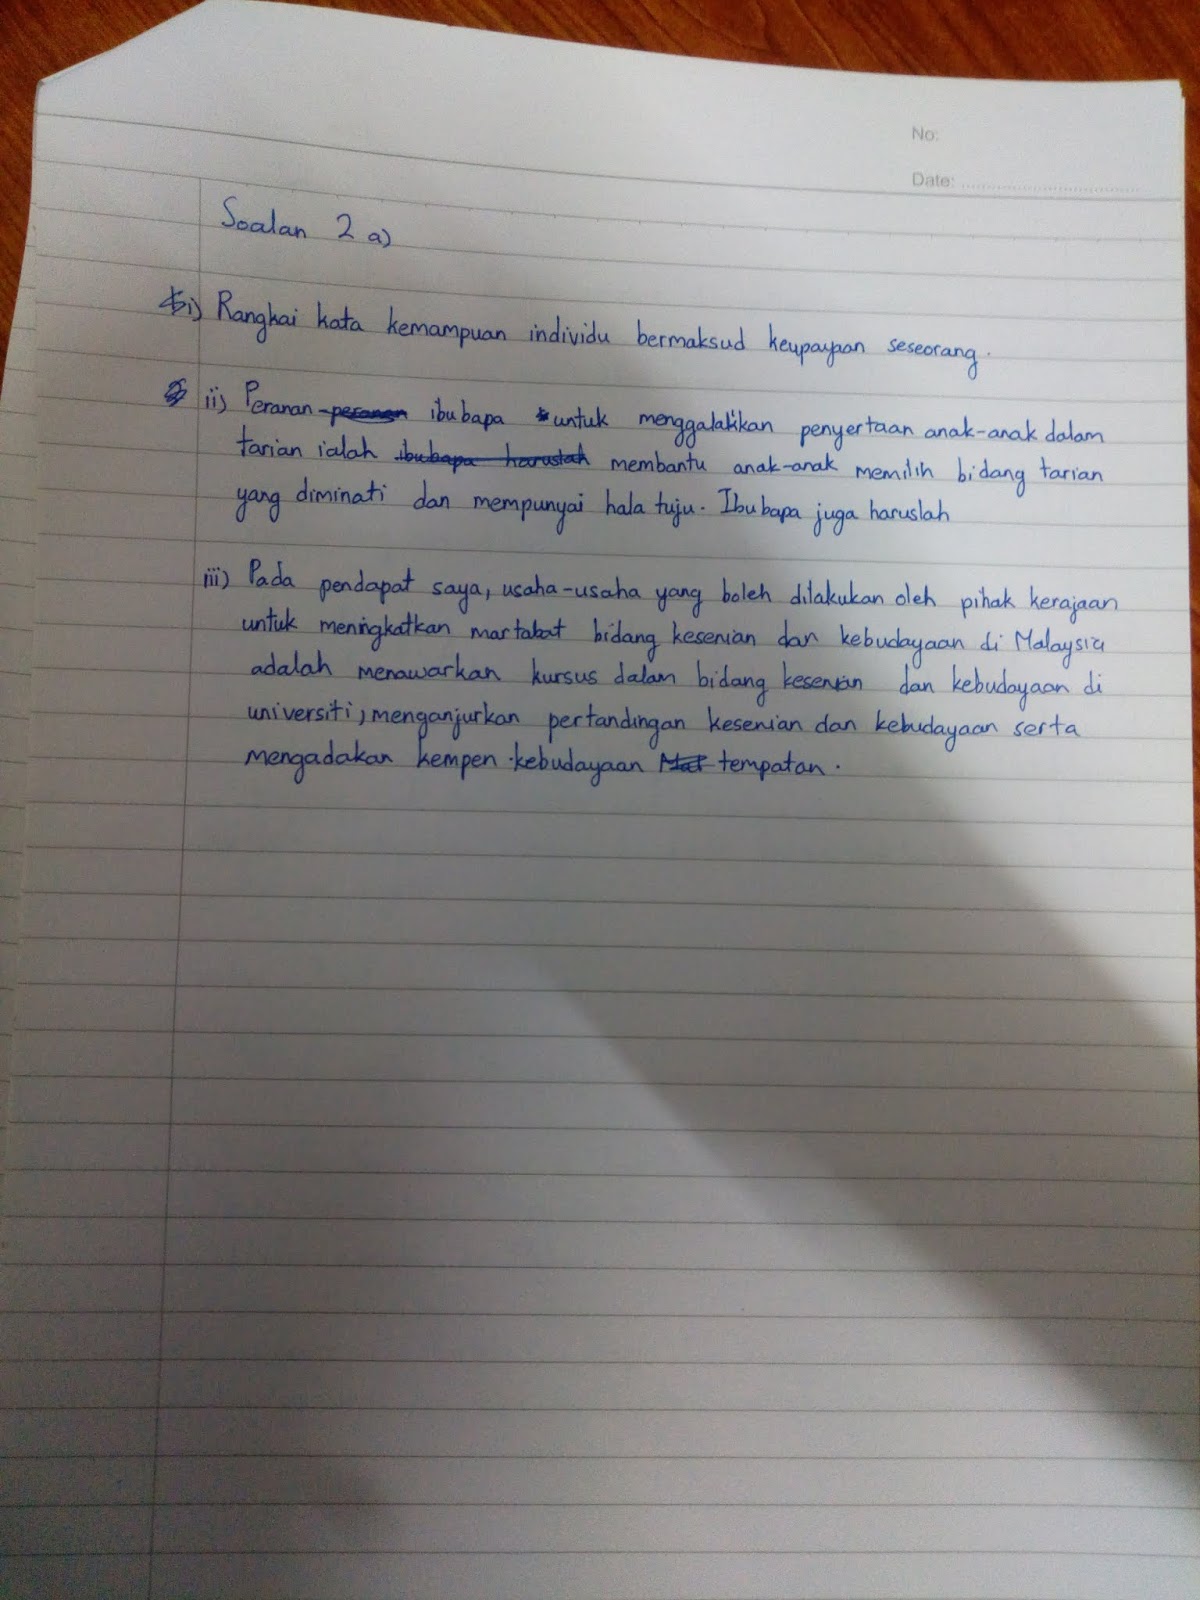 No:
Date:
Soalan 2 a)
i) Rangkai kata kemampuan individu bermaksud keupayaan seseorang.
ii) Peranan peranan ibu bapa untuk menggalakkan penyertaan anak-anak dalam
tarian ialah ibubapa haruslah membantu anak-anak memilih bidang tarian
yang diminati dan mempunyai hala tuju. Ibu bapa juga haruslah
iii) Pada pendapat saya, usaha-usaha yang boleh dilakukan oleh pihak kerajaan
untuk meningkatkan martabat bidang kesenian dan kebudayaan di Malaysia
adalah menawarkan kursus dalam bidang kesenian dan kebudayaan di
universiti, menganjurkan pertandingan kesenian dan kebudayaan serta
mengadakan kempen kebudayaan tempatan.